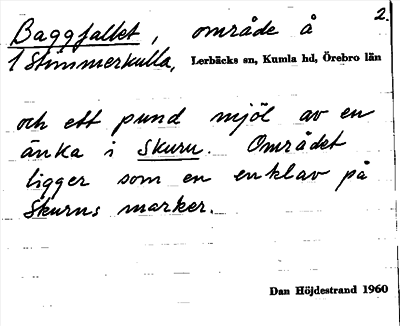 2.
Baggfallet, område å
1 Stimmerkulla, Lerbäcks sn, Kumla hd, Örebro län
och ett pund mjöl av en
änka i Skuru. Området
ligger som en enklav på
Skurns marker.
Dan Höjdestrand 1960